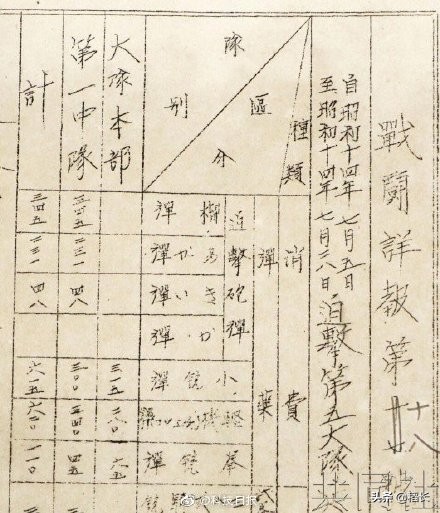 戰鬪詳報第
自昭和十四年七月五日
至昭和十四年七月二八日
迫擊第五大隊
種類
消費
彈藥
隊區分
別
迫擊砲彈
榴彈
あか彈
きい彈
か彈
小銃彈
拳銃彈
大隊本部
三一五
二八〇
六五
第一中隊
三四五
二三一
四八
三〇〇
三四〇
四五
計
三四五
二三一
四八
六一五
一一〇
@科技日报
头条 @稻长